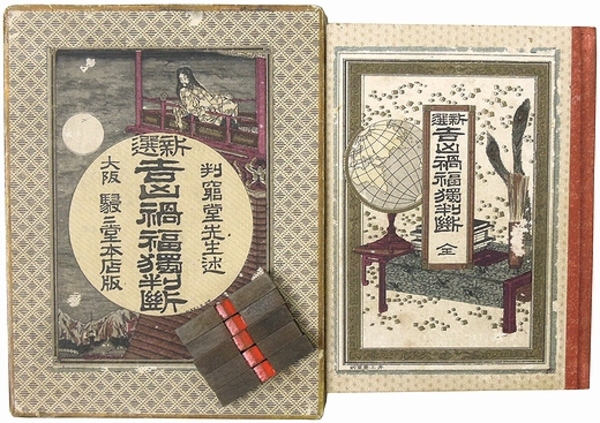 先生述
新選
吉凶禍福獨判斷
大阪 駸々堂本店版
新選
吉凶禍福獨判斷
全